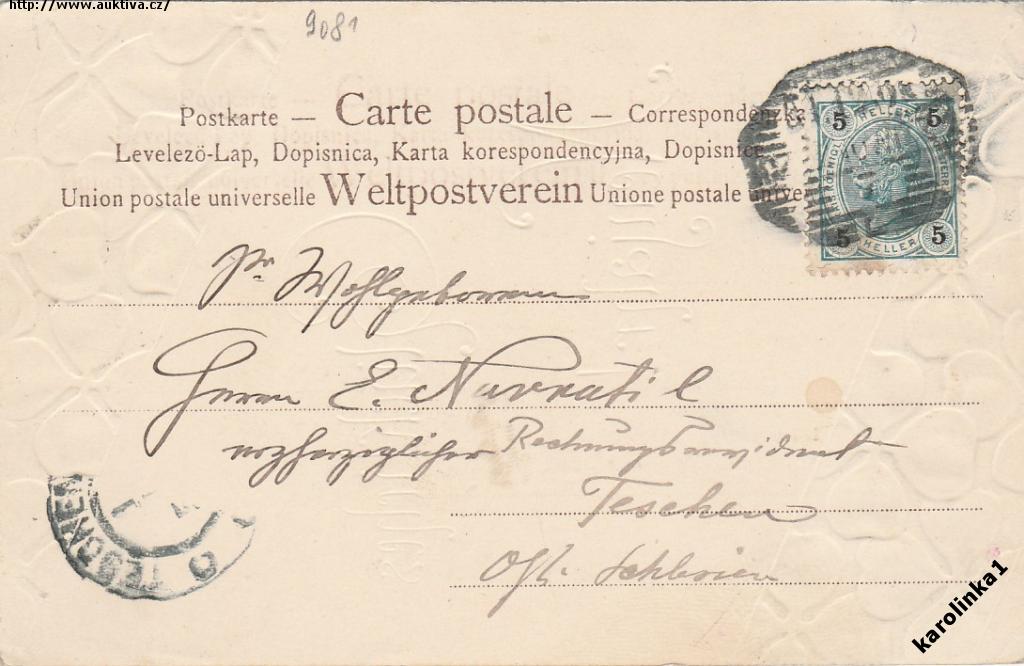 http://www.auktiva.cz/
9081
Postkarte — Carte postale — Correspondenzka
Levelezö-Lap, Dopisnica, Karta korespondencyjna, Dopisnice
Union postale universelle Weltpostverein Unione postale univer
5 HELLER 5
5 HELLER 5
Sr Wohlgeboren
Herrn E. Navratil
erzherzoglicher Rechnungsrevident
Teschen
Öst. Schlesien
TESCHEN
karolinka1